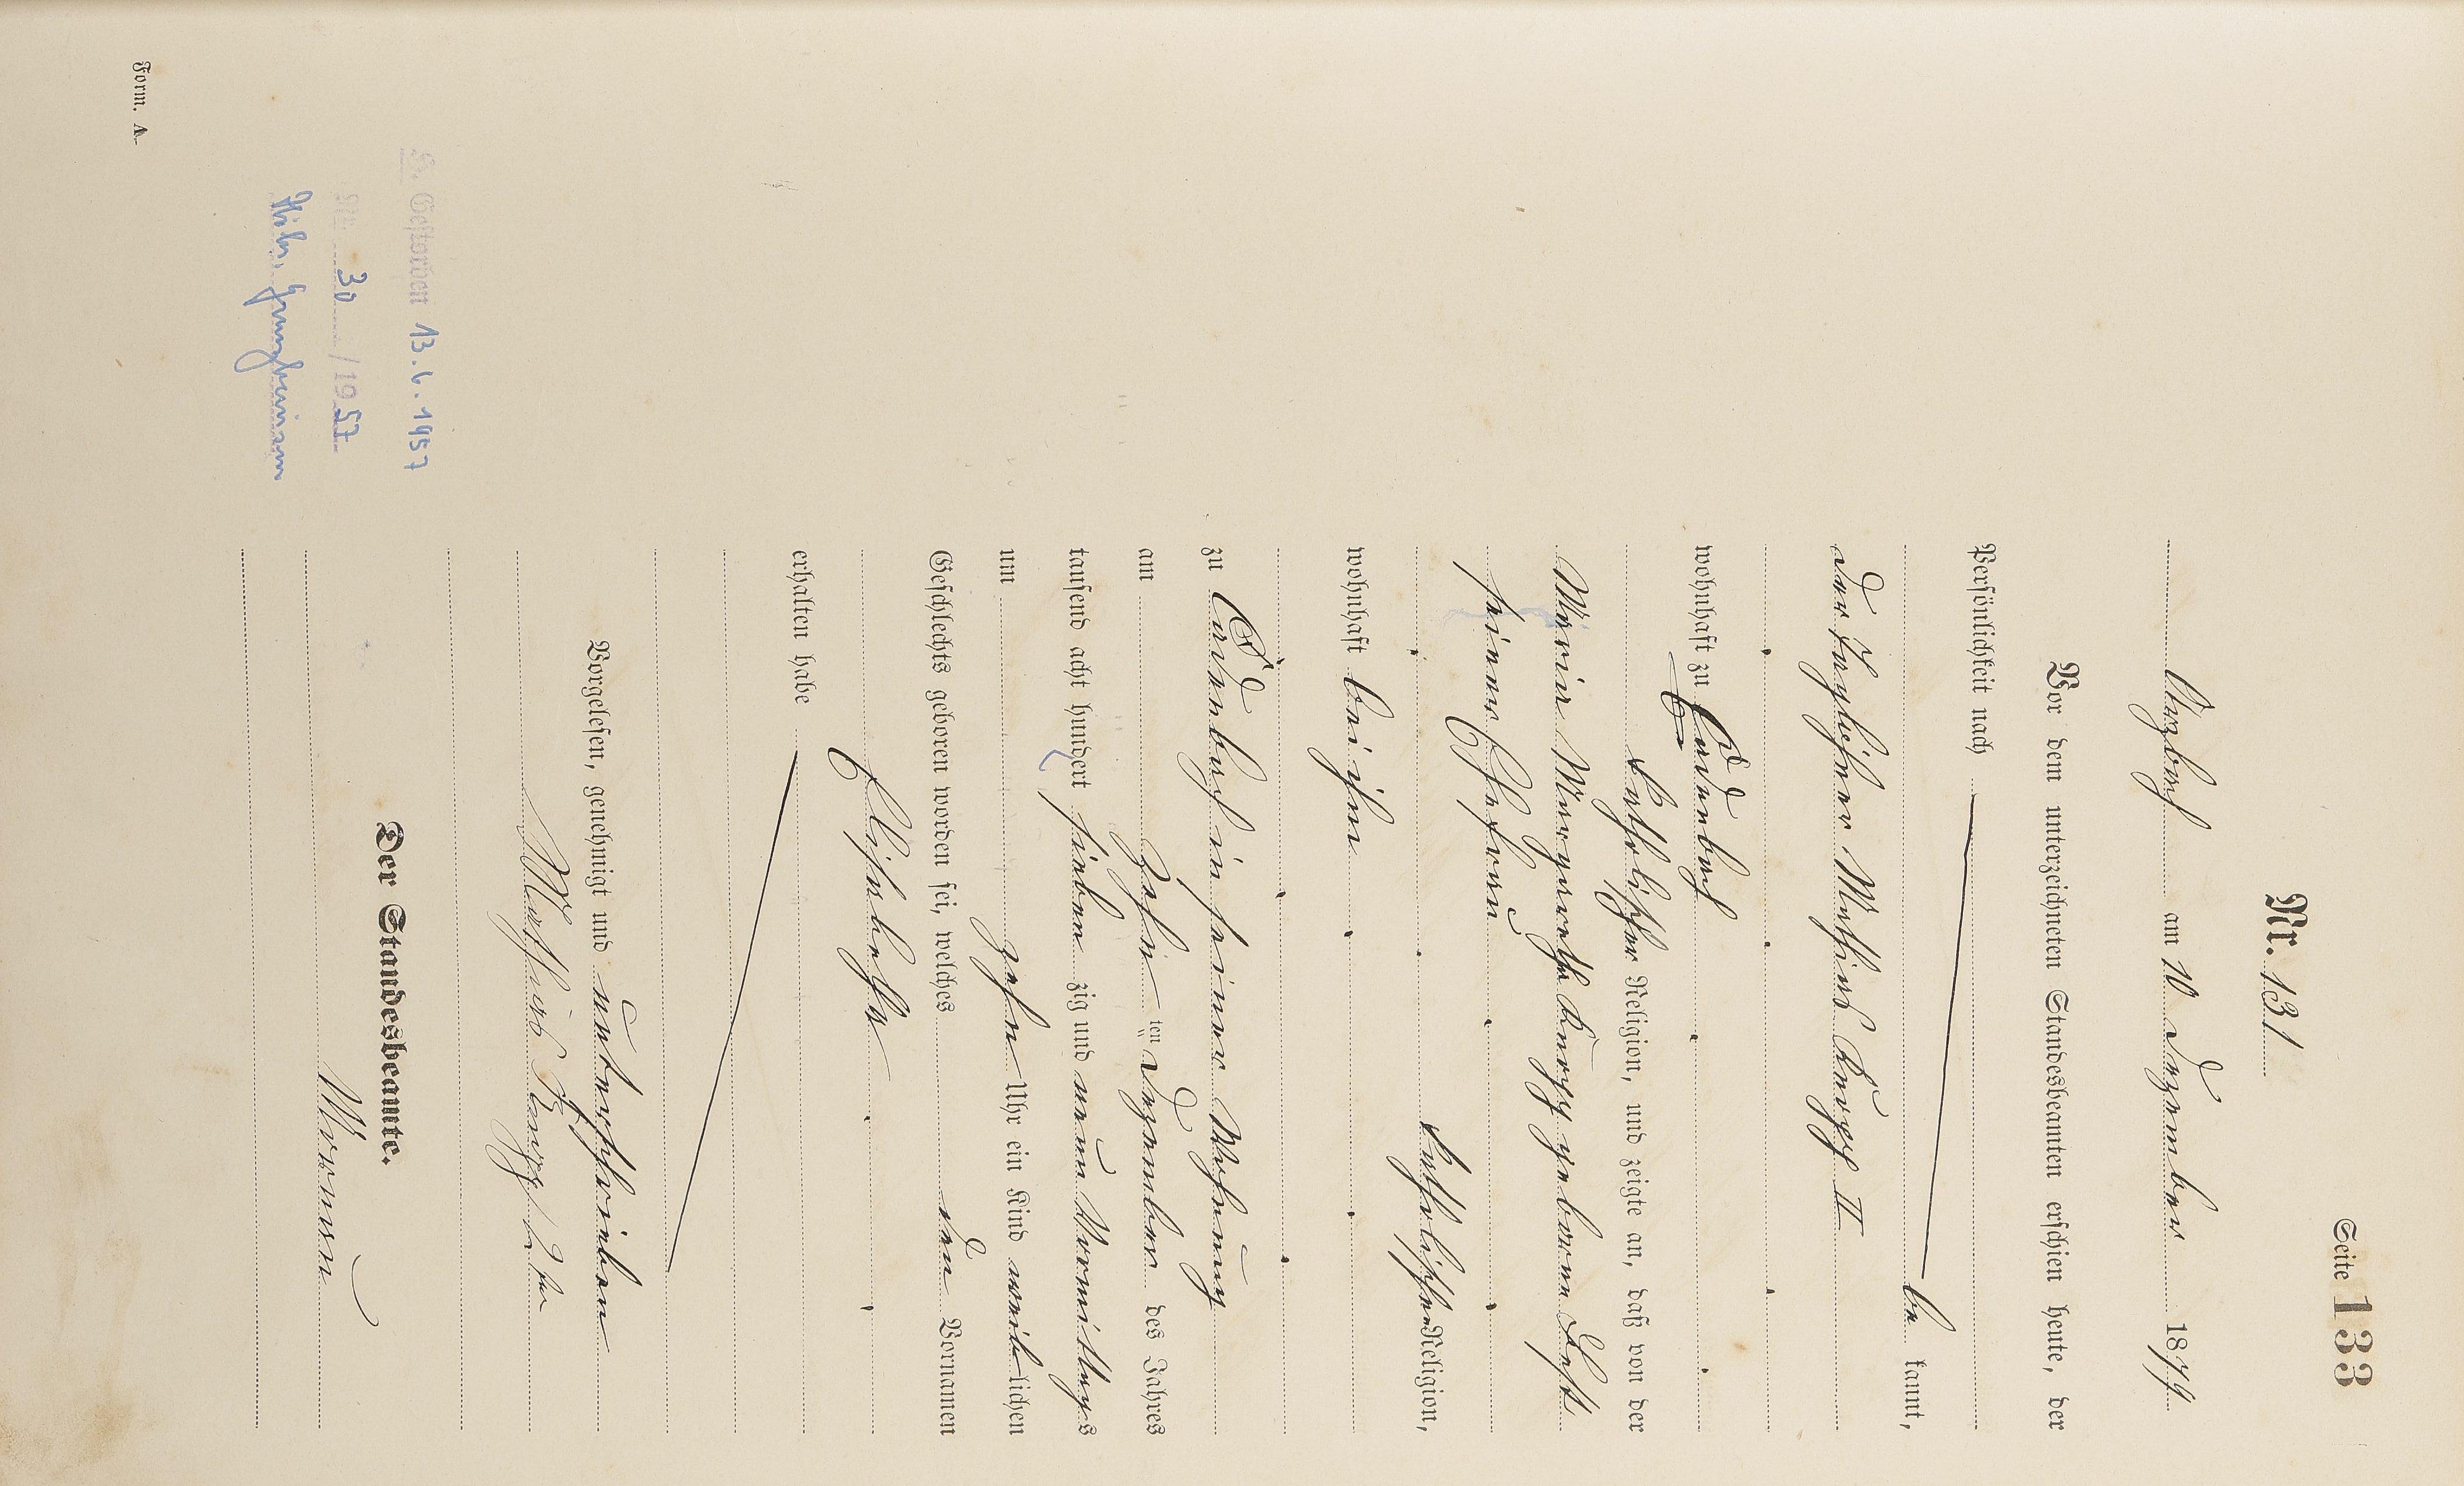 Seite 133
Nr. 131
Arzbach am 10 Dezember 1879
Vor dem unterzeichneten Standesbeamten erschien heute, der
Persönlichkeit nach
be kannt,
der Taglöhner Mathias
II
wohnhaft zu Cadenbach
katholischer Religion, und zeigte an, daß von der
Maria Margaretha geborene
seiner Ehefrau
katholischer Religion,
wohnhaft bei ihm
zu Cadenbach in seiner Wohnung
am Zehn ten Dezember des Jahres
tausend acht hundert sieben zig und neun Vormittags
um zehn Uhr ein Kind weib lichen
Geschlechts geboren worden sei, welches den Vornamen
Elisabetha
erhalten habe
Vorgelesen, genehmigt und unterschrieben
Mathias
Der Standesbeamte.
Gestorben 13.6.1957
Nr. 30 /1957
Form. A.